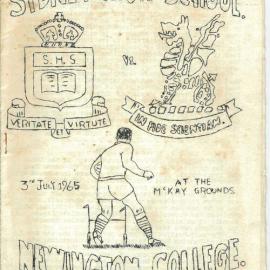 SYDNEY HIGH SCHOOL.
vs.
S.H.S
VERITATE ET VIRTUTE
IN FIDE SCIENTIAM.
3RD JULY 1965
AT THE
McKAY GROUNDS
NEWINGTON COLLEGE.